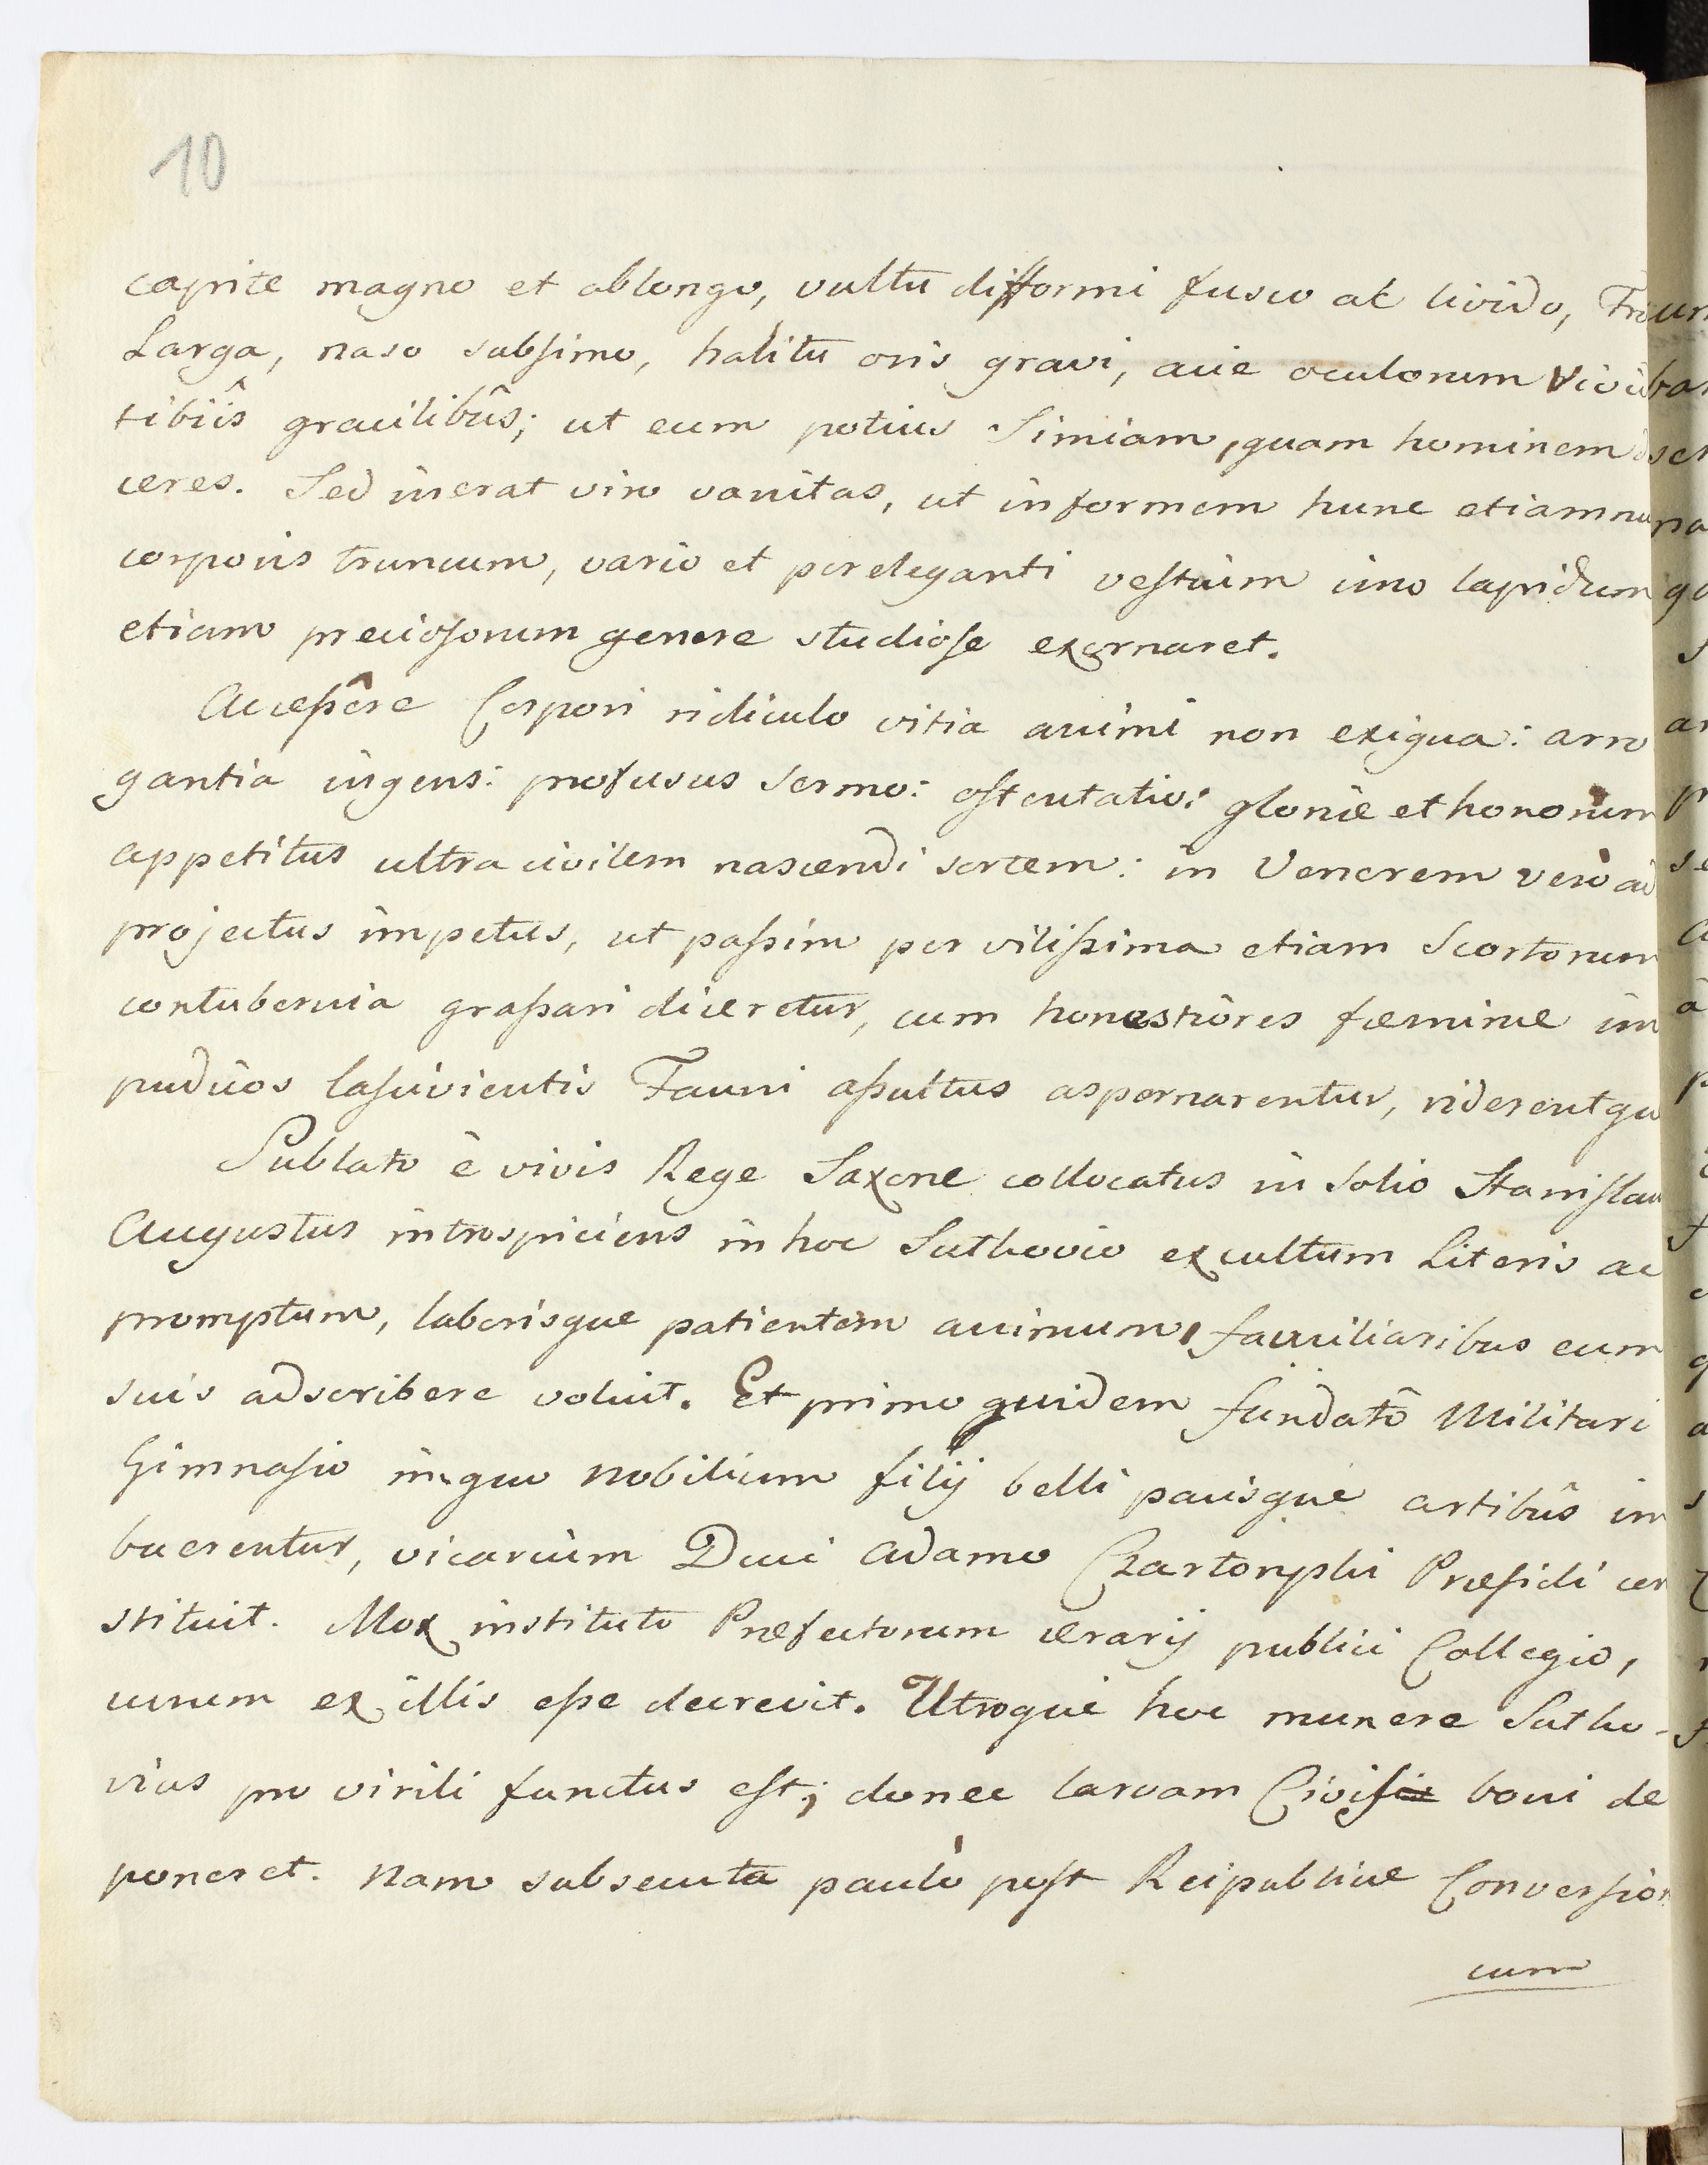 10
capite magno et oblongo, vultu difformi fusco ac livido,
Larga, naso subsimo, halitu oris gravi, acie oculorum
tibiîs gracilibûs; ut eum potius Simiam, quam hominem
ceres. Sed inerat viro vanitas, ut informem hunc etiamnu
corporis truncum, vario et pereleganti vestium imo lapidum
etiam preciosorum genere studiose exornaret.
Accessêre Corpori ridiculo vitia animi non exigua: arro
gantia ingens: profusus sermo: ostentatio: gloriæ et honorum
appetitus ultra civilem nascendi sortem: in Venerem verò ad
projectus impetus, ut passim per vilissima etiam Scortorum
contubernia grassari diceretur, cum honestiores fæminæ im
pudicos lascivientis Fauni assultus aspernarentur, riderentqu
Sublato è vivis Rege Saxone collocatus in Solio Stanislau
Augustus introspiciens in hoc Suthovio excultum Literis ac
promptum, laborisque patientem animum, familiaribus eum
suis adscribere voluit. Et primo quidem fundatô Militari
Gimnasio in quo Nobilium filij belli pacisque artibûs im
buerentur, vicarium Duci Adamo Czartoryski Præsidi con
stituit. Mox instituto Præfectorum ærarij publici Collegio,
unum ex illis esse decrevit. Utroque hoc munere Sutho-
vius pro virili functus est; donec larvam Civis boni de
poneret. Nam subsecuta paulò post Reipublicæ Conversion
cum